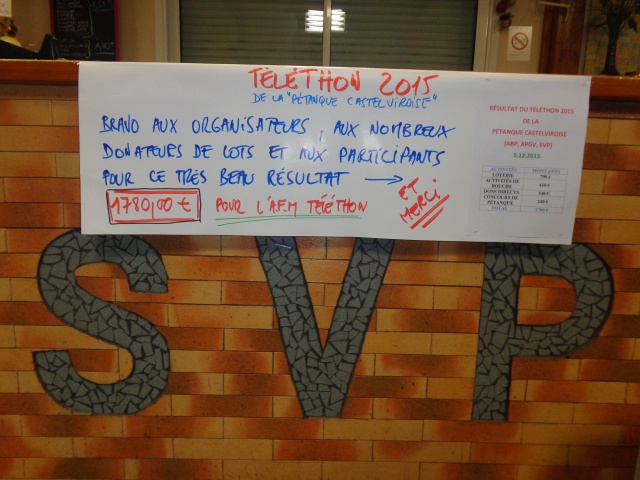 TÉLÉTHON 2015
DE LA "PÉTANQUE CASTELVIROISE"
BRAVO AUX ORGANISATEURS, AUX NOMBREUX
DONATEURS DE LOTS ET AUX PARTICIPANTS
POUR CE TRES BEAU RÉSULTAT →
ET
MERCI
1780,00 € POUR L'A.F.M TÉLÉTHON
RÉSULTAT DU TÉLÉTHON 2015
DE LA
PÉTANQUE CASTELVIROISE
(ABP, APGV, SVP)
5.12.2015
ACTIVITÉS MONTANTS
LOTERIE
ACTIVITÉS DE
BOUCHE
DONS DIRECTS
CONCOURS DE
PÉTANQUE
TOTAL
SVP